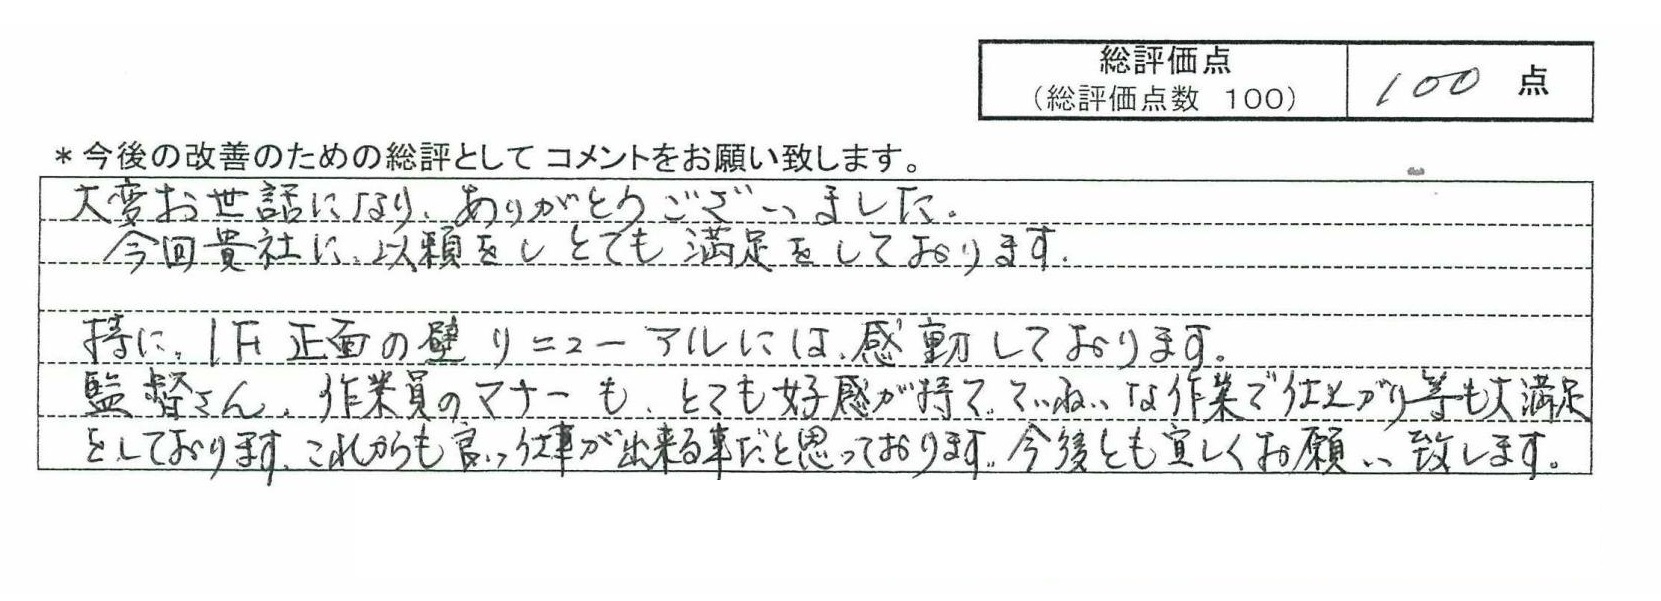 総評価点
(総評価点数 100)
100 点
*今後の改善のための総評としてコメントをお願い致します。
大変お世話になり、ありがとうございました。
今回貴社に、以頼をしとても満足をしております.
特に、1F正面の壁リニューアルには、感動しております。
監督さん、作業員のマナーも、とても好感が持て、ていねいな作業で仕上がり等も大満足
をしております、これからも良い仕事が出来る事だと思っております。今後とも宜しくお願い致します。